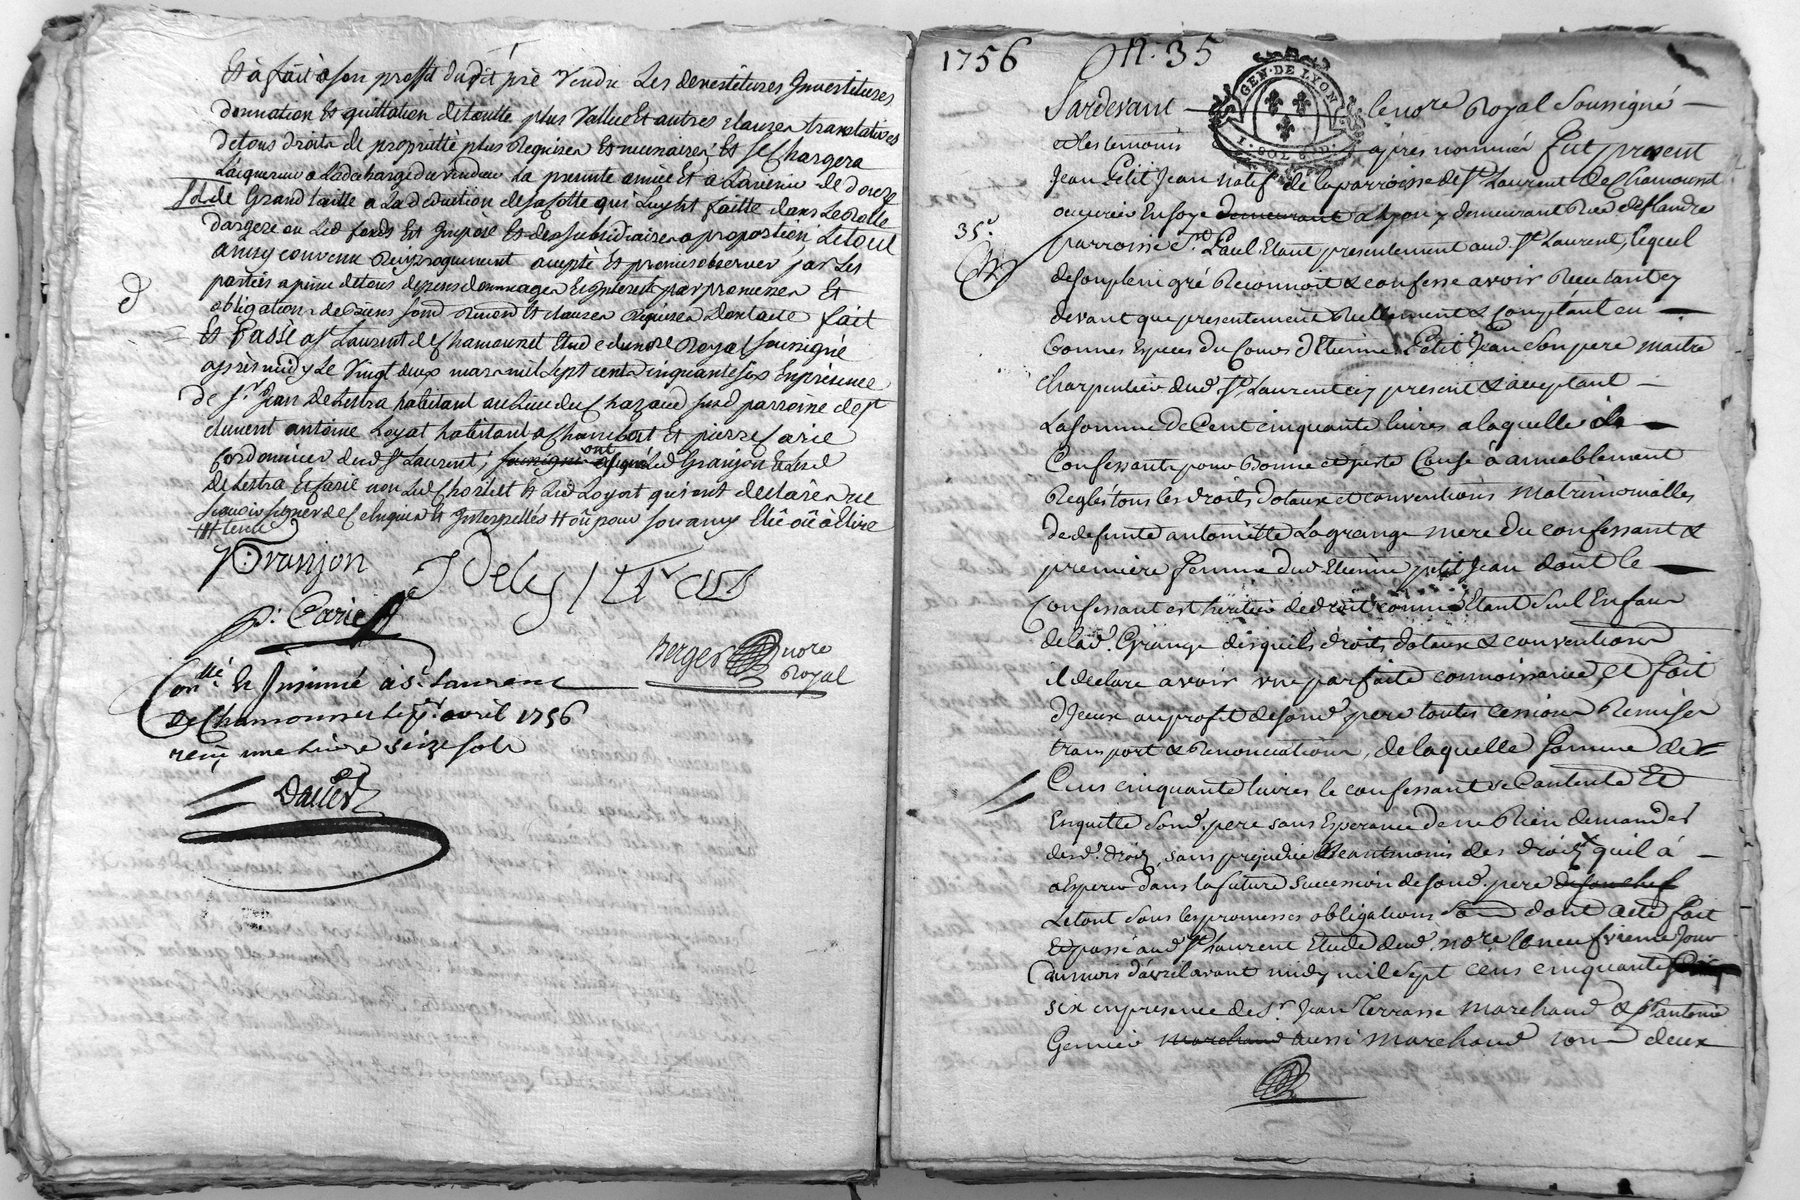 Et à fait a son proffit dudit pré vendu Les devestitures Investitures
donnation Et quittation de toutte plus vallue Et autres clauzes translatives
de tous droits de proprietté plus Requises Et necessaires Et Se Chargera
L'acquereur a La decharge du vendeur La presente année et a L'avenir de douze
sols de Grand taille a La deduction de sa Cotte qui Luy Est faitte dans Le Rolle
d'argere ou Led fonds Est Imposé Et des subsidiaires a proportion, Le tout
ainsy convenu Reciproquement accepté Et promis observer par Les
parties a peine de tous depens dommages Et Interests par promesses Et
obligations de biens soumd Renond Et clauzes Requises dont acte fait
Et Passé a St Laurent de Chamousset Etude du nore Royal soussigné
après midy Le Vingt deux mars mil Sept cents cinquante six En presence
de Sr Jean delestra habitant au Lieu du Chazaud susd parroisse de St
clement antoine Loyat habitant a Chambost Et pierre Carie
Cordonnier dud St Laurent, soussignés ont signé Led Granjon Et Led
delestra Et Carie non Led Et Led Loyat qui ont declaré ne
sçavoir signer de ce Enquis Et Interpellés
N: Granjon J Deles
P. Carie
Berger nore
Royal
Conllé Et Insinué a St. Laurent
de Chamousset le 1er avril 1756
reçu une livre seize sols
1756 N. 35
GEN. DE LYON
1. SOL
Pardevant le nore Royal Soussigné
et les temoins après nommés fut present
Jean Petit Jean natif de la parroisse de St Laurent de Chamousset
ouvrier En soye demeurant a Lyon y demeurant Rüe de flandre
35e
parroisse St Paul Etant presentement aud. St Laurent, lequel
de son plein gré Reconnoit & confesse avoir Reçu tant cy
devant que presentement Reellement & comptant en
Bonnes Especes du Cours d'Etienne Petit Jean son pere maitre
charpentier dud. St Laurent icy present & acceptant
La somme de Cent cinquante livres a laquelle ils
Confessants pour Bonne et juste Cause on amiablement
Reglés tous les droits dotaux et conventions matrimonialles
de defunte antoinette Lagrange mere du confessant &
premiere femme dud. Etienne petit Jean dont le
Confessant est héritier de droit comme Etant Seul Enfant
de lad. Grange desquels droits dotaux & conventions
il declare avoir une parfaite connoissance, et fait
d'Iceux au profit de sond. pere toutes cessions Remises
transport & Renonciations, de laquelle somme de
Cent cinquante livres le confessant se Contente Et
En quitte sond. pere sans Esperance de ne Rien demander
desd. droits, sans prejudice Neantmoins des droits quil à
a esperer dans la future succession de sond. pere de son chef
Le tout sous les promesses obligations dont acte fait
Et passé aud St Laurent Etude dud. nore le neufvieme Jour
du mois d'avril avant midy mil Sept cens cinquante
six en presence de Sr Jean Terrasse marchand & Sr antoine
Gernier marchand aussi marchand tous deux